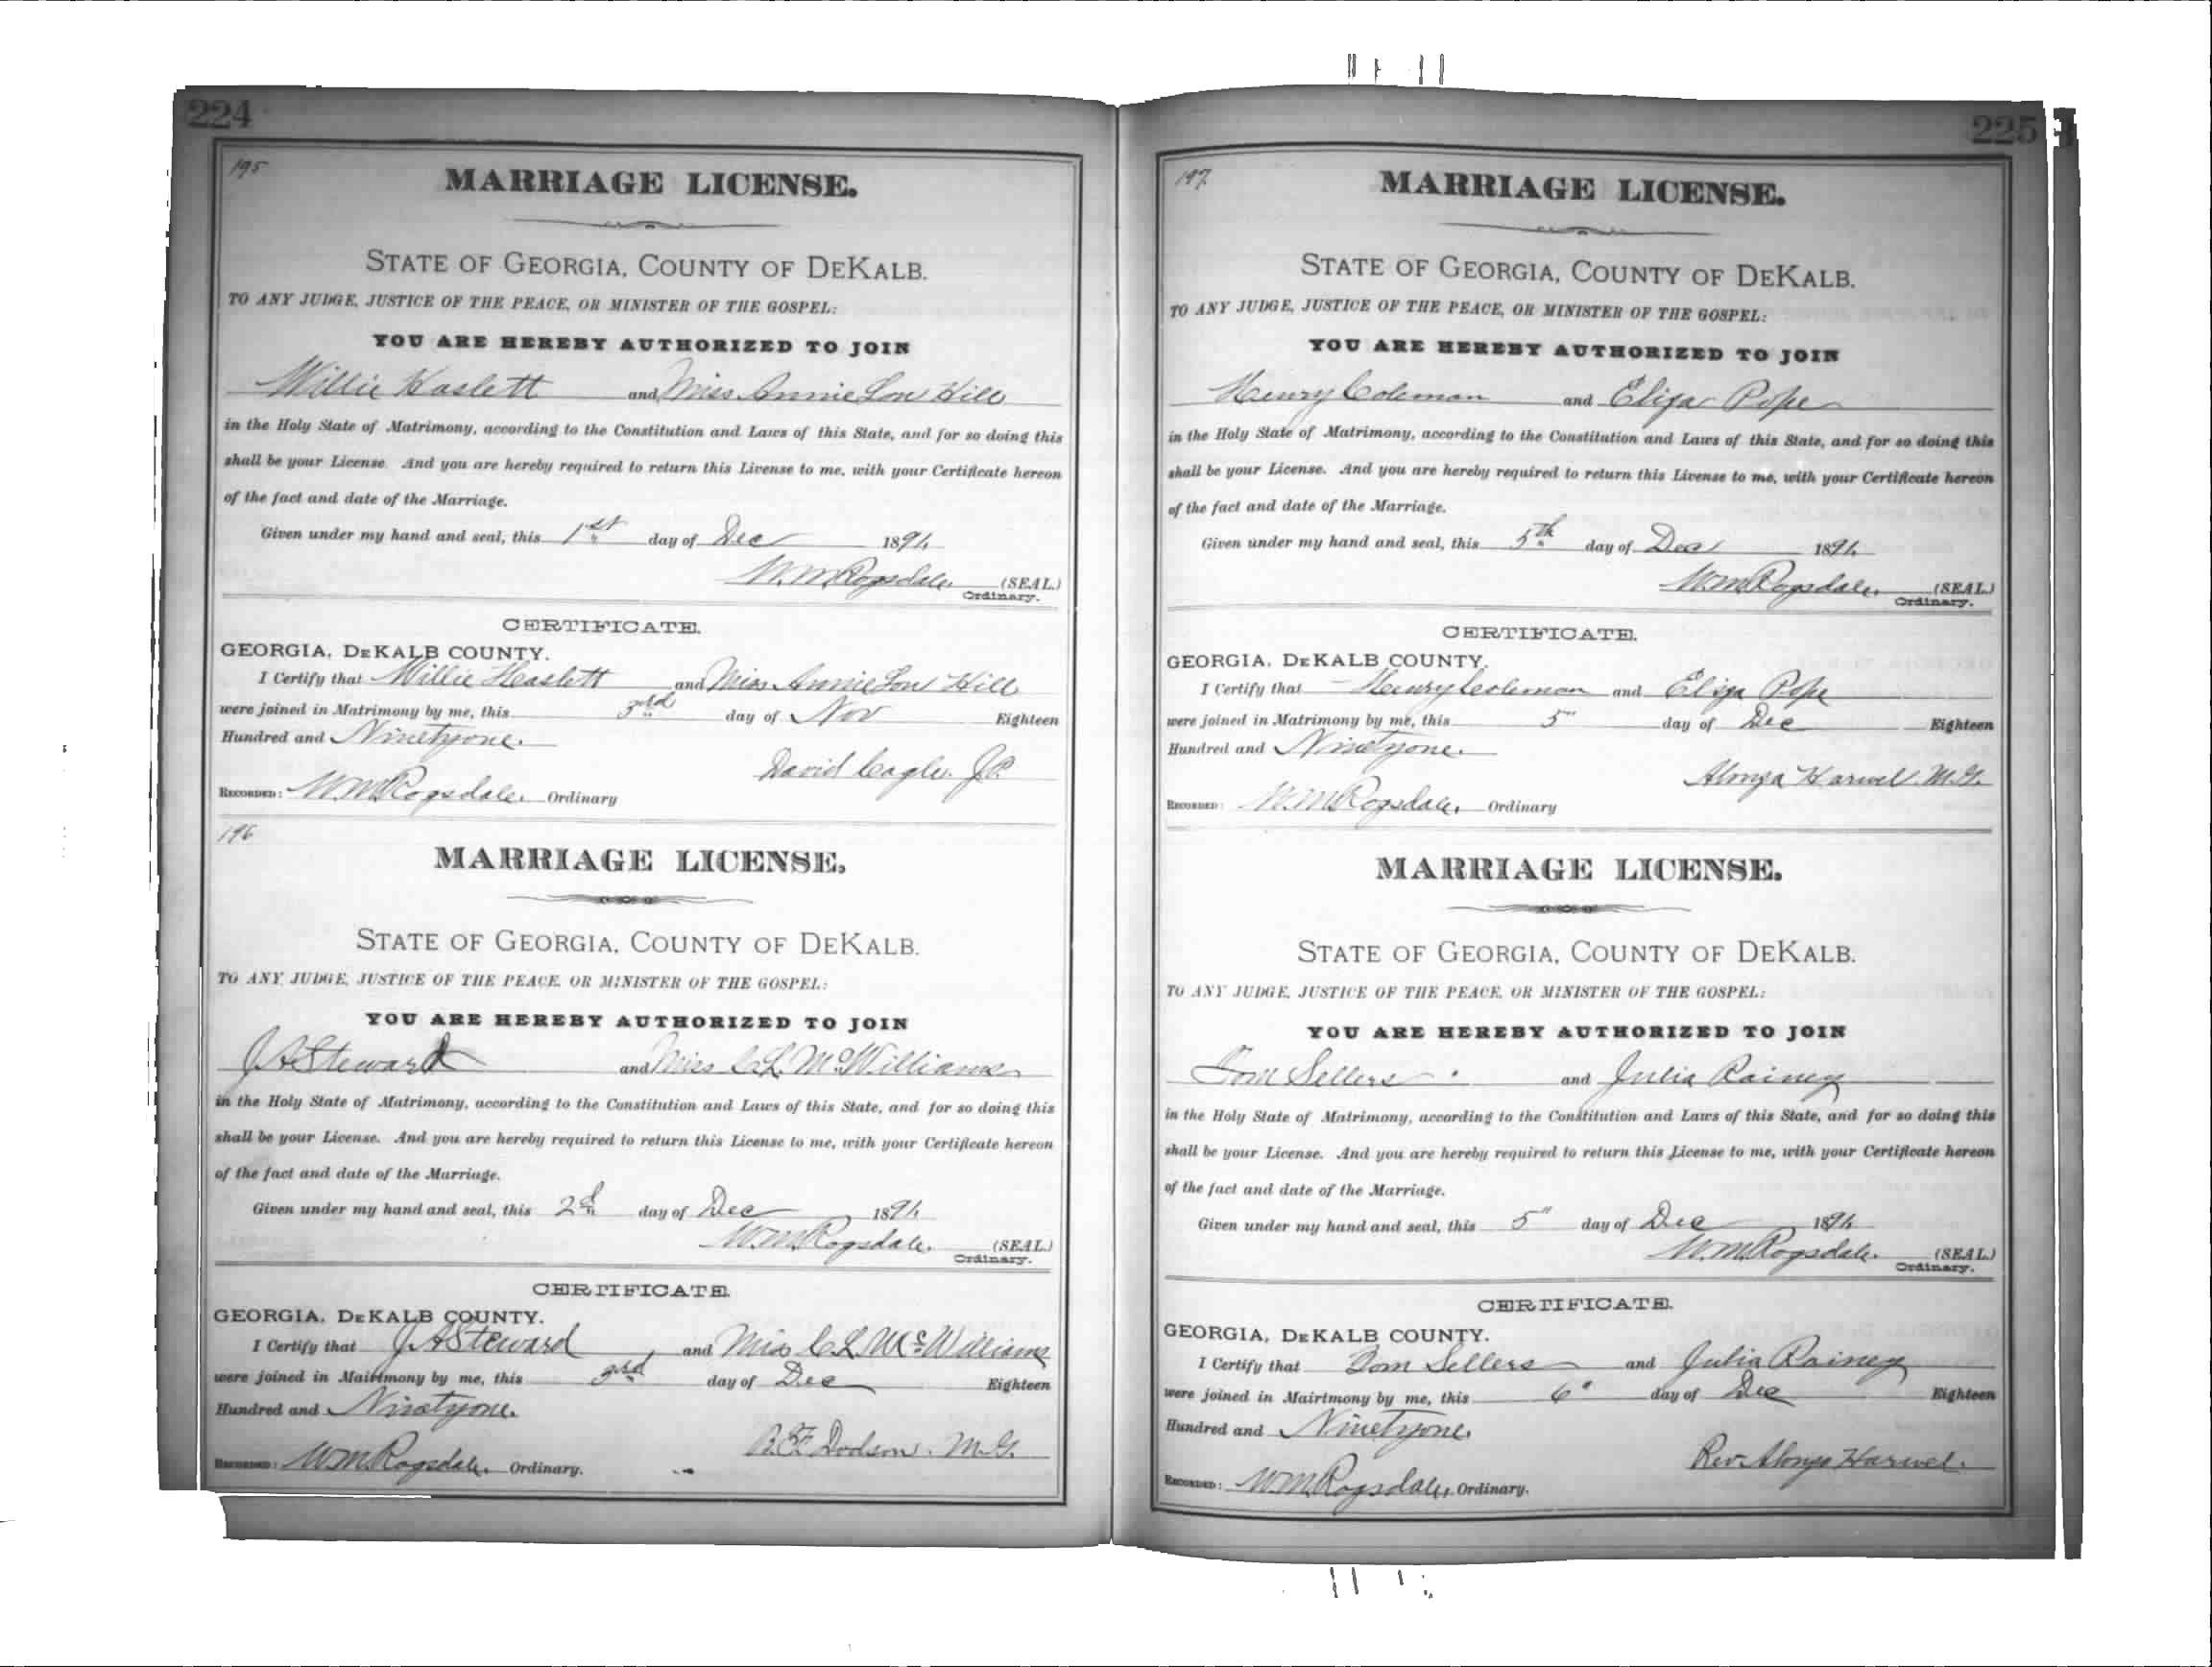 224
195
MARRIAGE LICENSE.
STATE OF GEORGIA, COUNTY OF DEKALB.
TO ANY JUDGE, JUSTICE OF THE PEACE, OR MINISTER OF THE GOSPEL:
YOU ARE HEREBY AUTHORIZED TO JOIN
Willie Haslett and Miss Annie Lou Hill
in the Holy State of Matrimony, according to the Constitution and Laws of this State, and for so doing this
shall be your License. And you are hereby required to return this License to me, with your Certificate hereon
of the fact and date of the Marriage.
Given under my hand and seal, this 1st day of Dec 1891.
W.M. Ragsdale. (SEAL.)
Ordinary.
CERTIFICATE.
GEORGIA, DEKALB COUNTY.
I Certify that Willie Haslett and Miss Annie Lou Hill
were joined in Matrimony by me, this 3rd day of Nov Eighteen
Hundred and Ninetyone.
David Cagle. J.P.
RECORDED: W.M. Ragsdale. Ordinary
196
MARRIAGE LICENSE.
STATE OF GEORGIA, COUNTY OF DEKALB.
TO ANY JUDGE, JUSTICE OF THE PEACE, OR MINISTER OF THE GOSPEL:
YOU ARE HEREBY AUTHORIZED TO JOIN
J A Steward and Miss C.L. McWilliams
in the Holy State of Matrimony, according to the Constitution and Laws of this State, and for so doing this
shall be your License. And you are hereby required to return this License to me, with your Certificate hereon
of the fact and date of the Marriage.
Given under my hand and seal, this 2d day of Dec 1891.
W.M. Ragsdale. (SEAL.)
Ordinary.
CERTIFICATE.
GEORGIA, DEKALB COUNTY.
I Certify that J A Steward and Miss C L McWilliams
were joined in Mairtmony by me, this 3rd day of Dec Eighteen
Hundred and Ninetyone.
Dodson. M.G.
RECORDED: W.M. Ragsdale. Ordinary.
225
197.
MARRIAGE LICENSE.
STATE OF GEORGIA, COUNTY OF DEKALB.
TO ANY JUDGE, JUSTICE OF THE PEACE, OR MINISTER OF THE GOSPEL:
YOU ARE HEREBY AUTHORIZED TO JOIN
Henry Coleman and Eliza Pope
in the Holy State of Matrimony, according to the Constitution and Laws of this State, and for so doing this
shall be your License. And you are hereby required to return this License to me, with your Certificate hereon
of the fact and date of the Marriage.
Given under my hand and seal, this 5th day of Dec 1891.
W.M. Ragsdale. (SEAL.)
Ordinary.
CERTIFICATE.
GEORGIA, DEKALB COUNTY.
I Certify that Henry Coleman and Eliza Pope
were joined in Matrimony by me, this 5" day of Dec Eighteen
Hundred and Ninetyone.
Alonza Harwel. M.G.
RECORDED: W.M. Ragsdale. Ordinary
MARRIAGE LICENSE.
STATE OF GEORGIA, COUNTY OF DEKALB.
TO ANY JUDGE, JUSTICE OF THE PEACE, OR MINISTER OF THE GOSPEL:
YOU ARE HEREBY AUTHORIZED TO JOIN
Tom Sellers and Julia Rainey
in the Holy State of Matrimony, according to the Constitution and Laws of this State, and for so doing this
shall be your License. And you are hereby required to return this License to me, with your Certificate hereon
of the fact and date of the Marriage.
Given under my hand and seal, this 5" day of Dec 1891.
W.M. Ragsdale. (SEAL.)
Ordinary.
CERTIFICATE.
GEORGIA, DEKALB COUNTY.
I Certify that Tom Sellers and Julia Rainey
were joined in Mairtmony by me, this 6" day of Dec Eighteen
Hundred and Ninetyone.
Rev. Alonza Harwel.
RECORDED: W.M. Ragsdale, Ordinary.